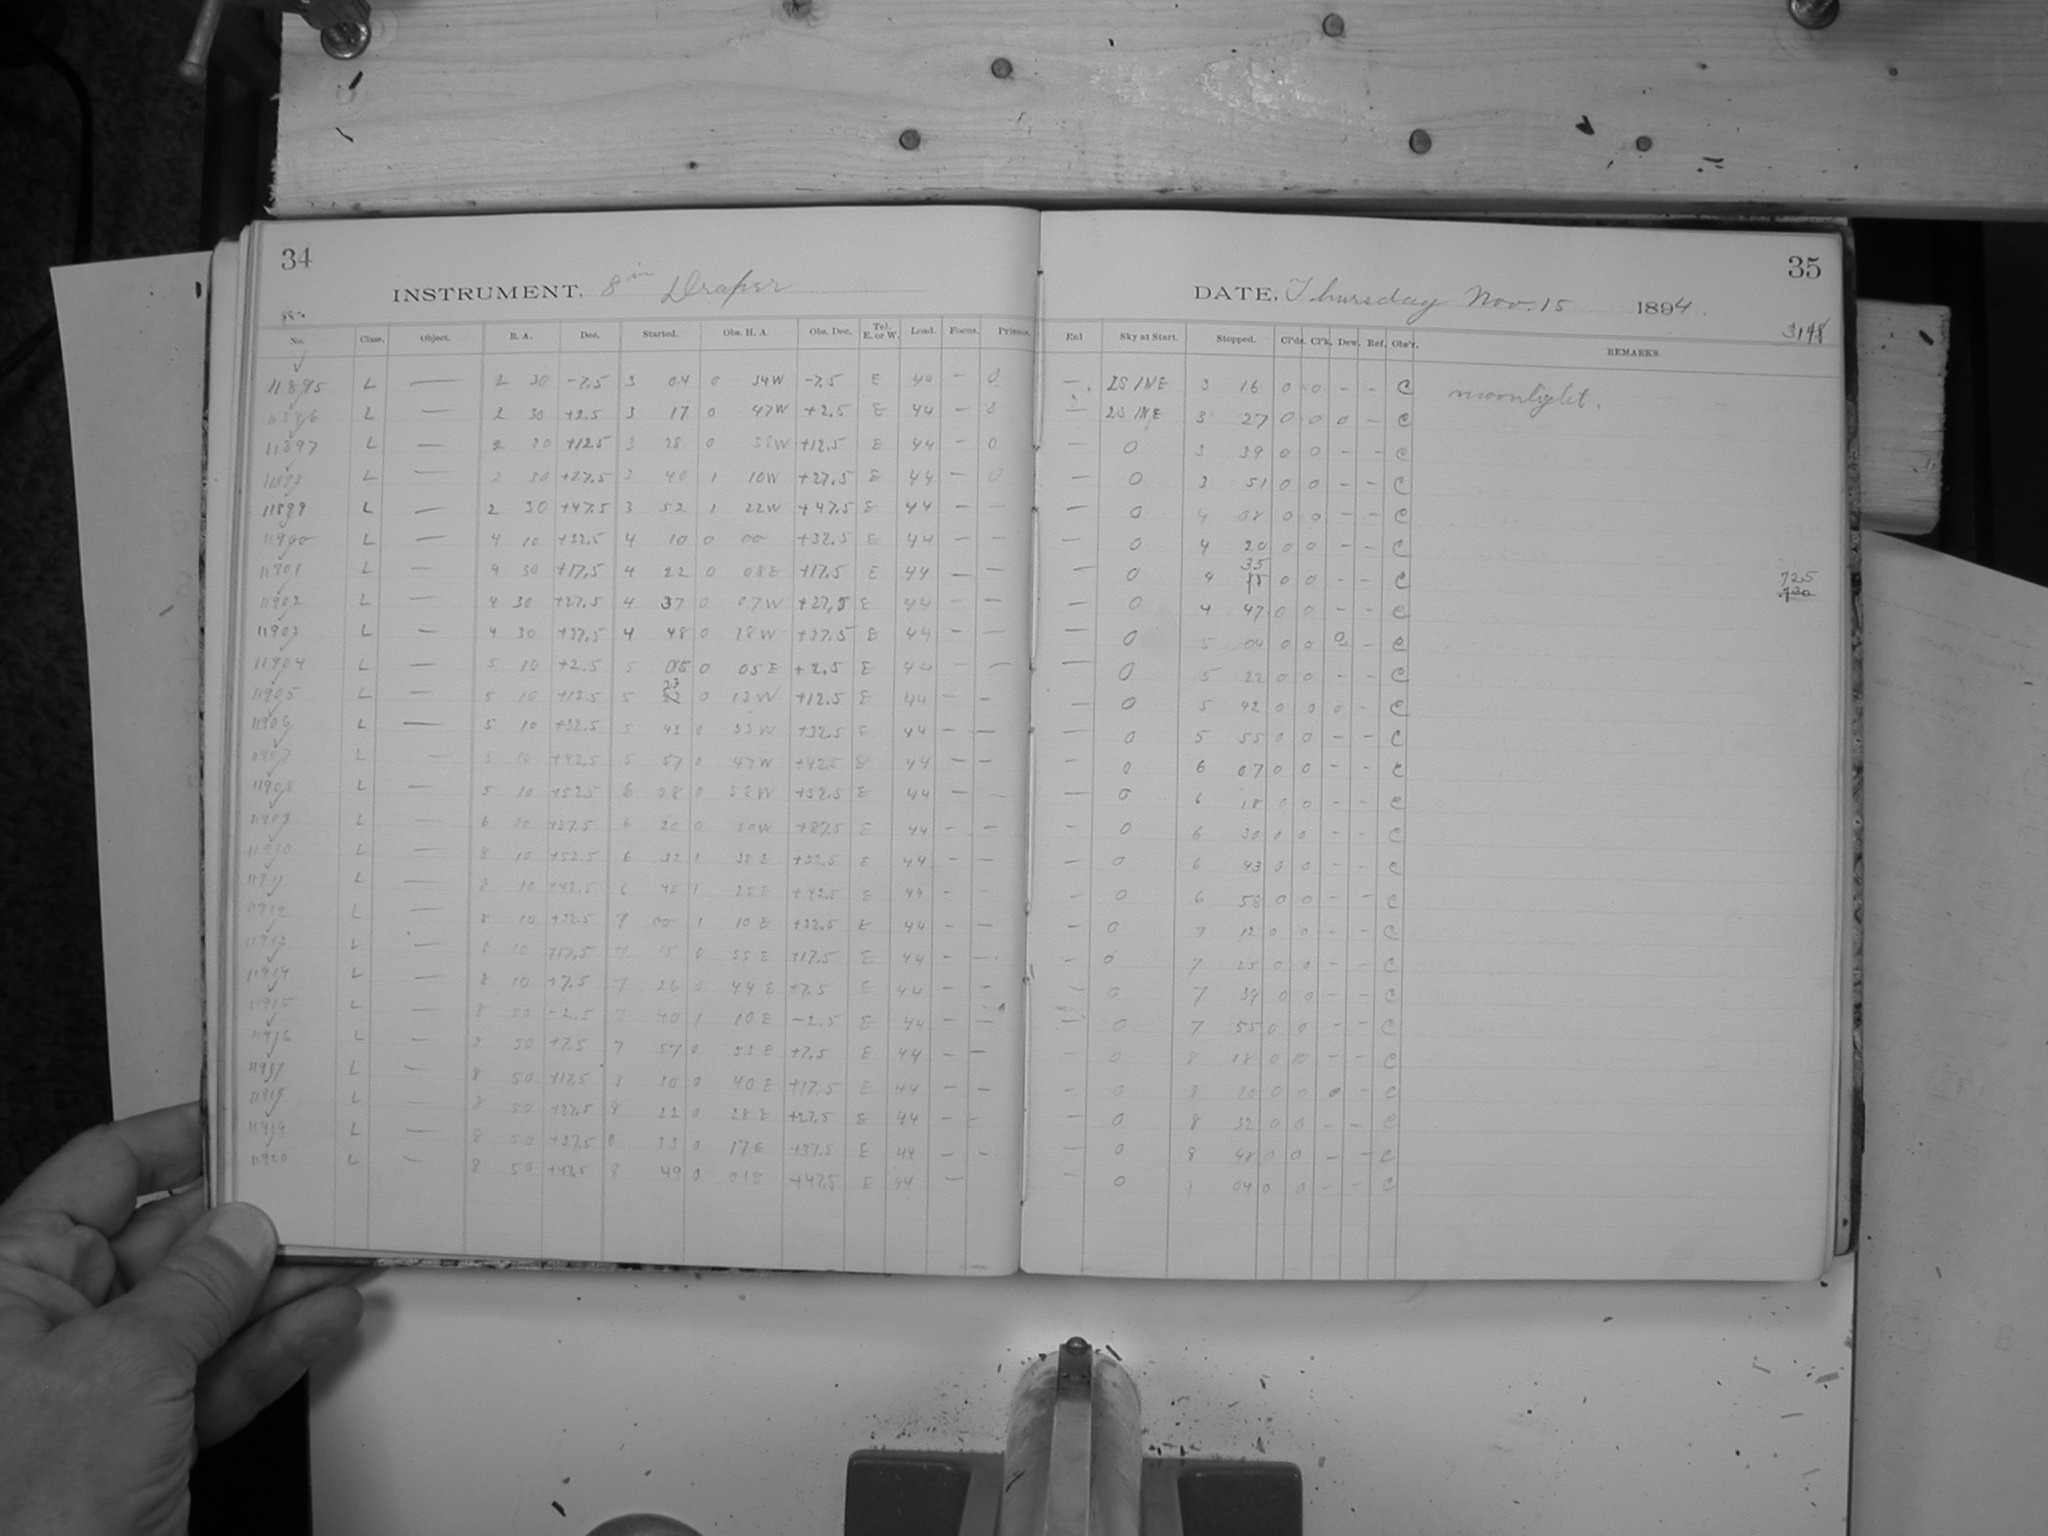 34
INSTRUMENT, 8 in Draper
No. Class. Object. R. A. Dec. Started. Obs. H. A. Obs. Dec. Tel. E. or W. Load. Focus. Prisms.
11895 L — 2 30 -7.5 3 04 0 34W -7.5 E 44 — 0
11896 L — 2 30 +2.5 3 17 0 47W +2.5 E 44 — 0
11897 L — 2 30 +12.5 3 28 0 58W +12.5 E 44 — 0
11898 L — 2 30 +27.5 3 40 1 10W +27.5 E 44 — 0
11899 L — 2 30 +47.5 3 52 1 22W +47.5 E 44 — —
11900 L — 4 10 +32.5 4 10 0 00 +32.5 E 44 — —
11901 L — 4 30 +17.5 4 22 0 08E +17.5 E 44 — —
11902 L — 4 30 +27.5 4 37 0 07W +27.5 E 44 — —
11903 L — 4 30 +37.5 4 48 0 18W +37.5 E 44 — —
11904 L — 5 10 +2.5 5 05 0 05E +2.5 E 44 — —
11905 L — 5 10 +12.5 5 23 0 13W +12.5 E 44 — —
11906 L — 5 10 +32.5 5 43 0 33W +32.5 E 44 — —
11907 L — 5 10 +42.5 5 57 0 47W +42.5 E 44 — —
11908 L — 5 10 +52.5 6 08 0 58W +52.5 E 44 — —
11909 L — 6 00 6 20 0 20W +87.5 E 44 — —
11910 L — 8 10 +52.5 6 32 1 38E +52.5 E 44 — —
11911 L — 8 10 +42.5 6 45 1 25E +42.5 E 44 - -
11912 L — 8 10 +32.5 7 00 1 10E +32.5 E 44 — —
11913 L — 8 10 +17.5 7 15 0 55E +17.5 E 44 — —
11914 L — 8 10 +7.5 7 26 0 44E +7.5 E 44 — —
11915 L — 8 50 -2.5 7 40 1 10E -2.5 E 44 — —
11916 L — 8 50 +7.5 7 57 0 53E +7.5 E 44 — —
11917 L — 8 50 +17.5 8 10 0 40E +17.5 E 44 — —
11918 L — 8 50 +27.5 8 22 0 28E +27.5 E 44 — —
11919 L — 8 50 +37.5 8 33 0 17E +37.5 E 44 — —
11920 L — 8 50 +47.5 8 49 0 01E +47.5 E 44 —
35
DATE, Thursday Nov. 15 1894.
Enl Sky at Start. Stopped. Cl'ds. Cl'k. Dew. Ref. Obs'r. REMARKS.
— 2S 1NE 3 16 0 0 - - C moonlight.
— 2S 1NE 3 27 0 0 0 - C
— 0 3 39 0 0 - - C
— 0 3 51 0 0 - - C
— 0 4 08 0 0 - - C
— 0 4 20 0 0 - - C
— 0 4 35 0 0 - - C 725
— 0 4 47 0 0 - - C 730
— 0 5 04 0 0 0 - C
— 0 5 22 0 0 - - C
— 0 5 42 0 0 0 - C
— 0 5 55 0 0 - - C
— 0 6 07 0 0 - - C
— 0 6 18 0 0 - - C
— 0 6 30 0 0 - - C
— 0 6 43 0 0 - - C
— 0 6 58 0 0 - - C
— 0 7 12 0 0 - - C
— 0 7 25 0 0 - - C
— 0 7 39 0 0 - - C
— 0 7 55 0 0 - - C
— 0 8 0 - - C
— 0 8 20 0 0 0 - C
— 0 8 32 0 0 - - C
— 0 8 48 0 0 - - C
— 0 9 04 0 0 - - C